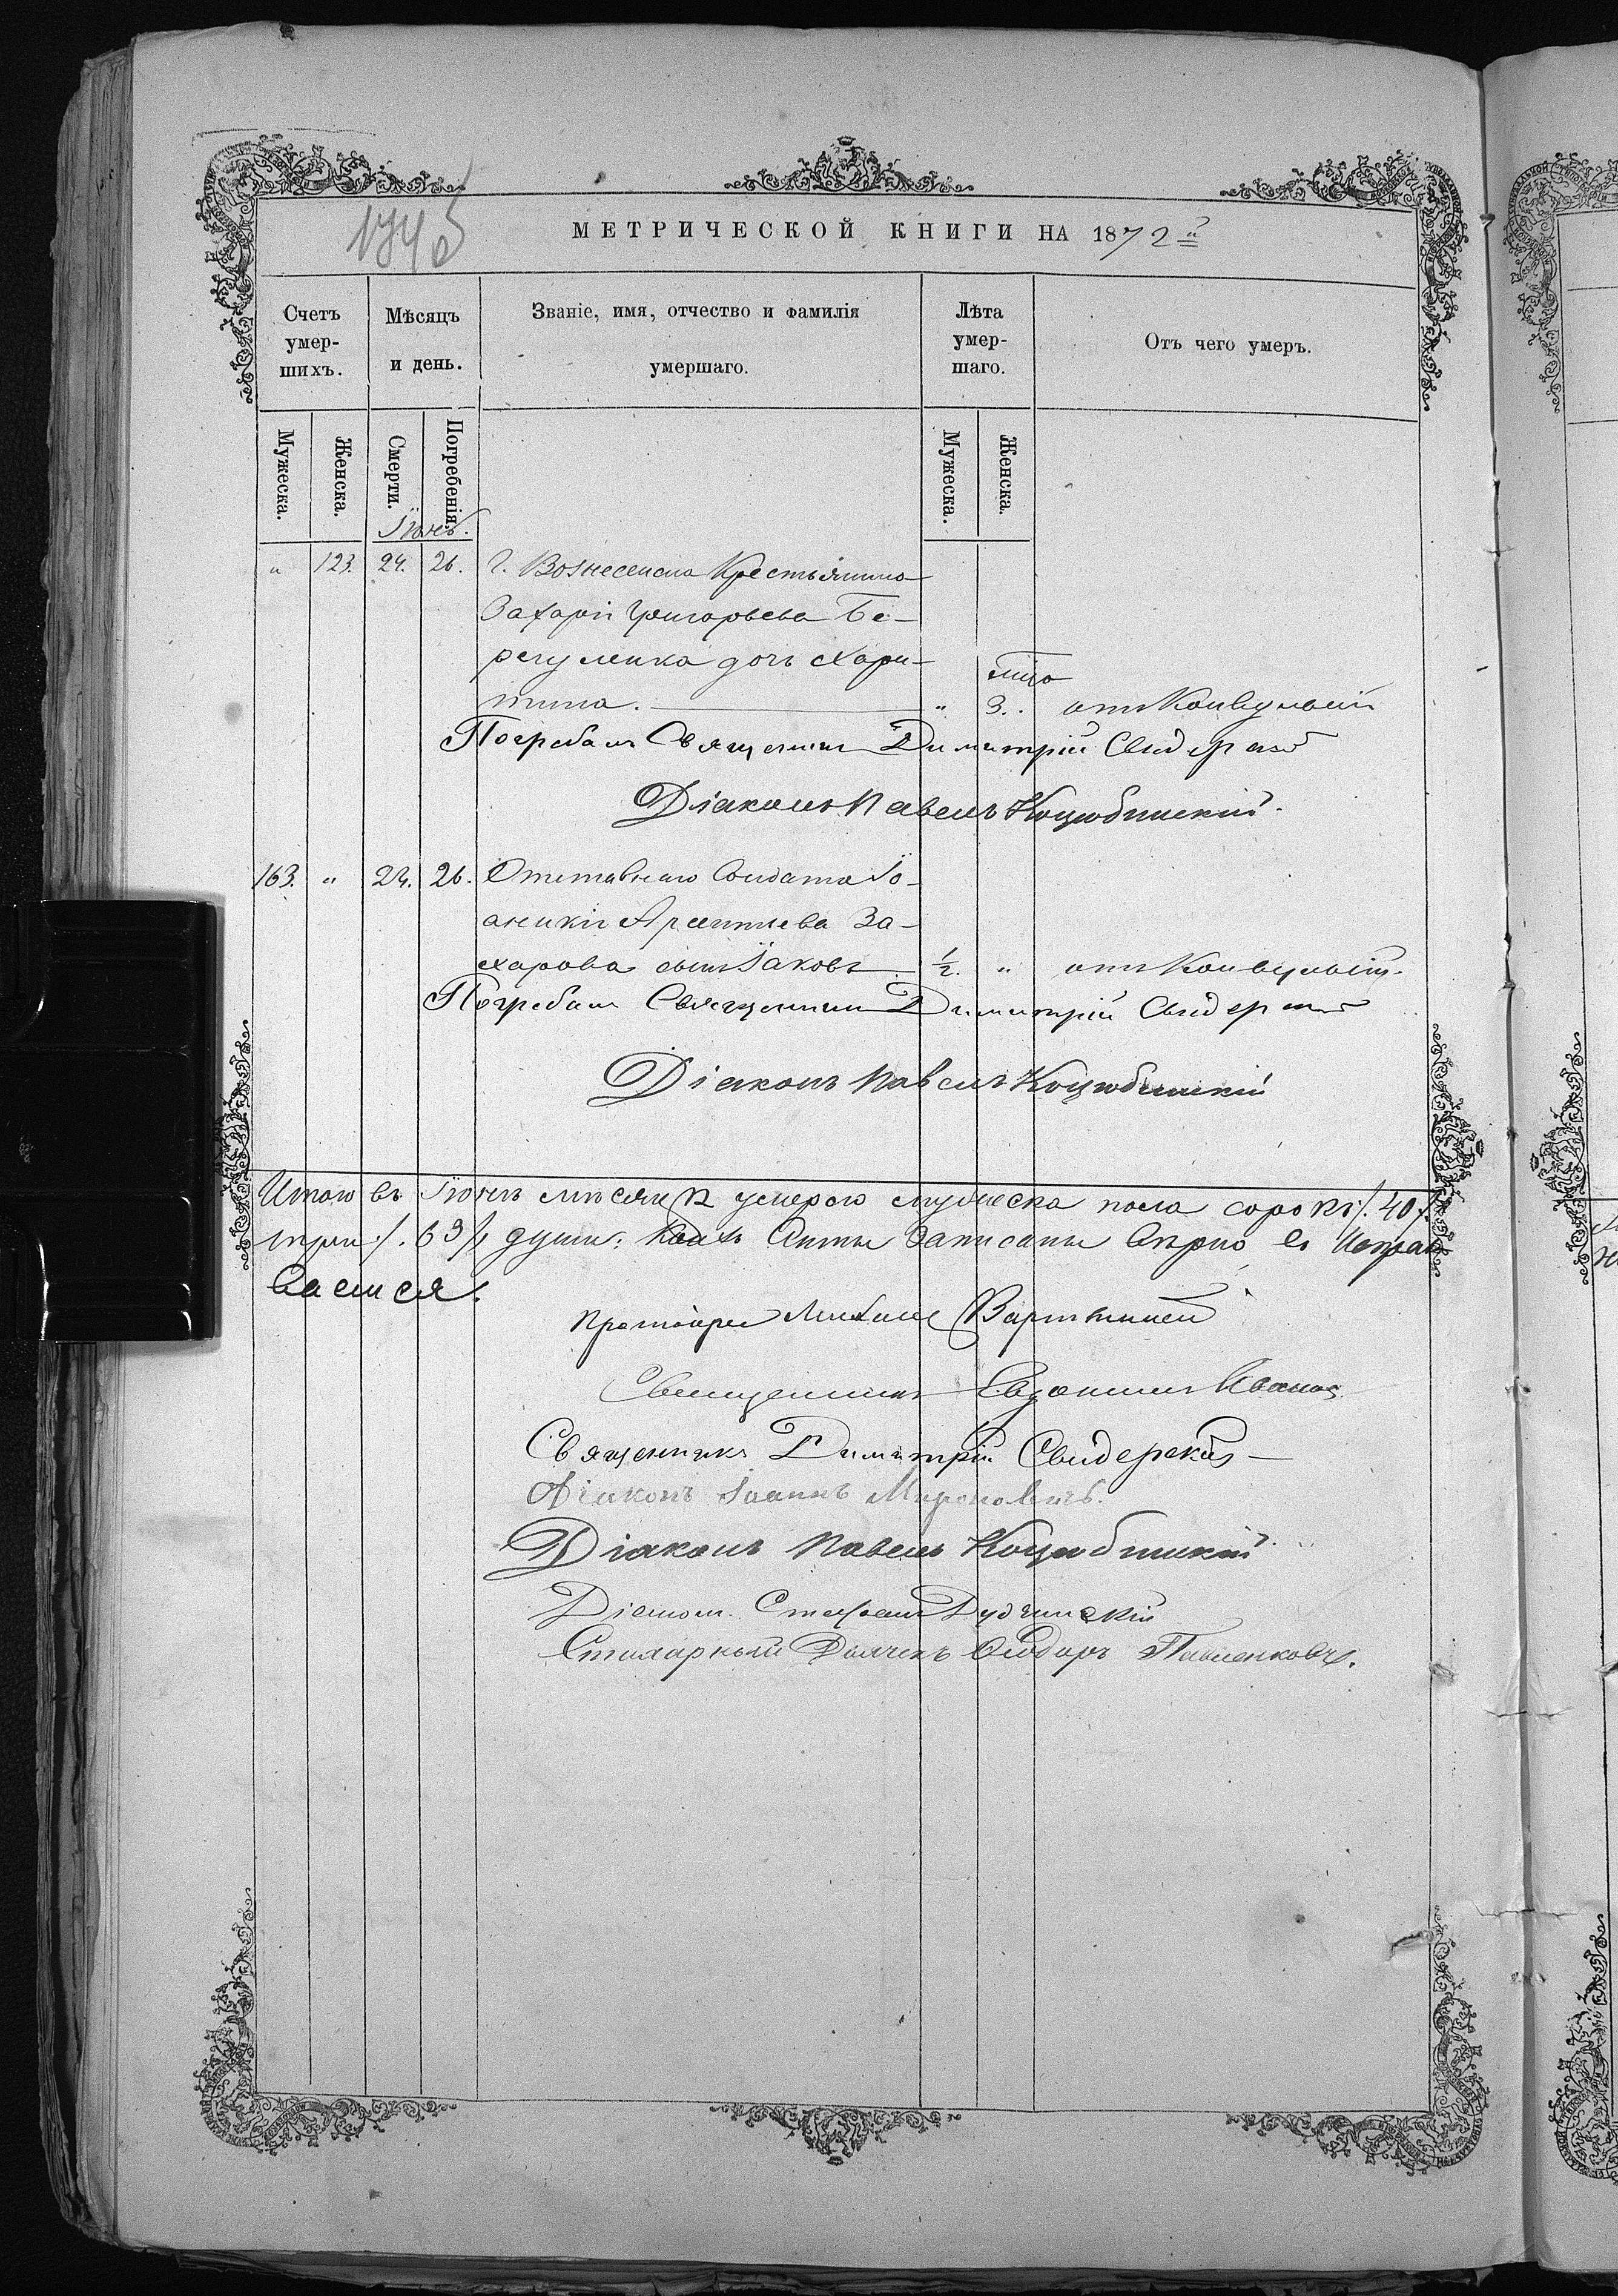 МЕТРИЧЕСКОЙ КНИГИ НА 1872й
Счетъ умер-шихъ.
Мѣсяцъ и день.
Званіе, имя, отчество и фамилія умершаго.
Лѣта умер-шаго.
Отъ чего умеръ.
Мужеска.
Женска.
Смерти.
Погребенія.
Мужеска.
Женска.
Іюнь.
" 123. 24. 26. г. Вознесенска Крестьянина
Захарія Григорьева Бе-
регуленка дочь Хари-
тина. " 3. отъ Конвульсій
Погребалъ Священникъ Димитрій Свидерскій
Діаконъ Павелъ Коцюбинскій.
163. " 24. 26. Отставнаго Солдата Іо-
аникія Арсентиева За-
харова сынъ Іаковъ 1/2. " отъ Конвульсій.
Погребалъ Священникъ Димитрій Свидерскій
Діаконъ Павелъ Коцюбинскій
Итого въ Іюнѣ мѣсяцѣ умерло мужеска пола сорокъ /. 40 /.
три /. 63 /. души. Акты записаны вѣрно въ
ваемся.
Протоіерей Михаилъ
Священникъ Евдокимъ Иванов
Священникъ Димитрій Свидерскій
Діаконъ Іоаннъ Мироновичъ.
Діаконъ Павелъ Коцюбинскій
Діаконъ Стефанъ Дудчинскій
Стихарный Дьячекъ Ѳеодоръ Павленковъ.